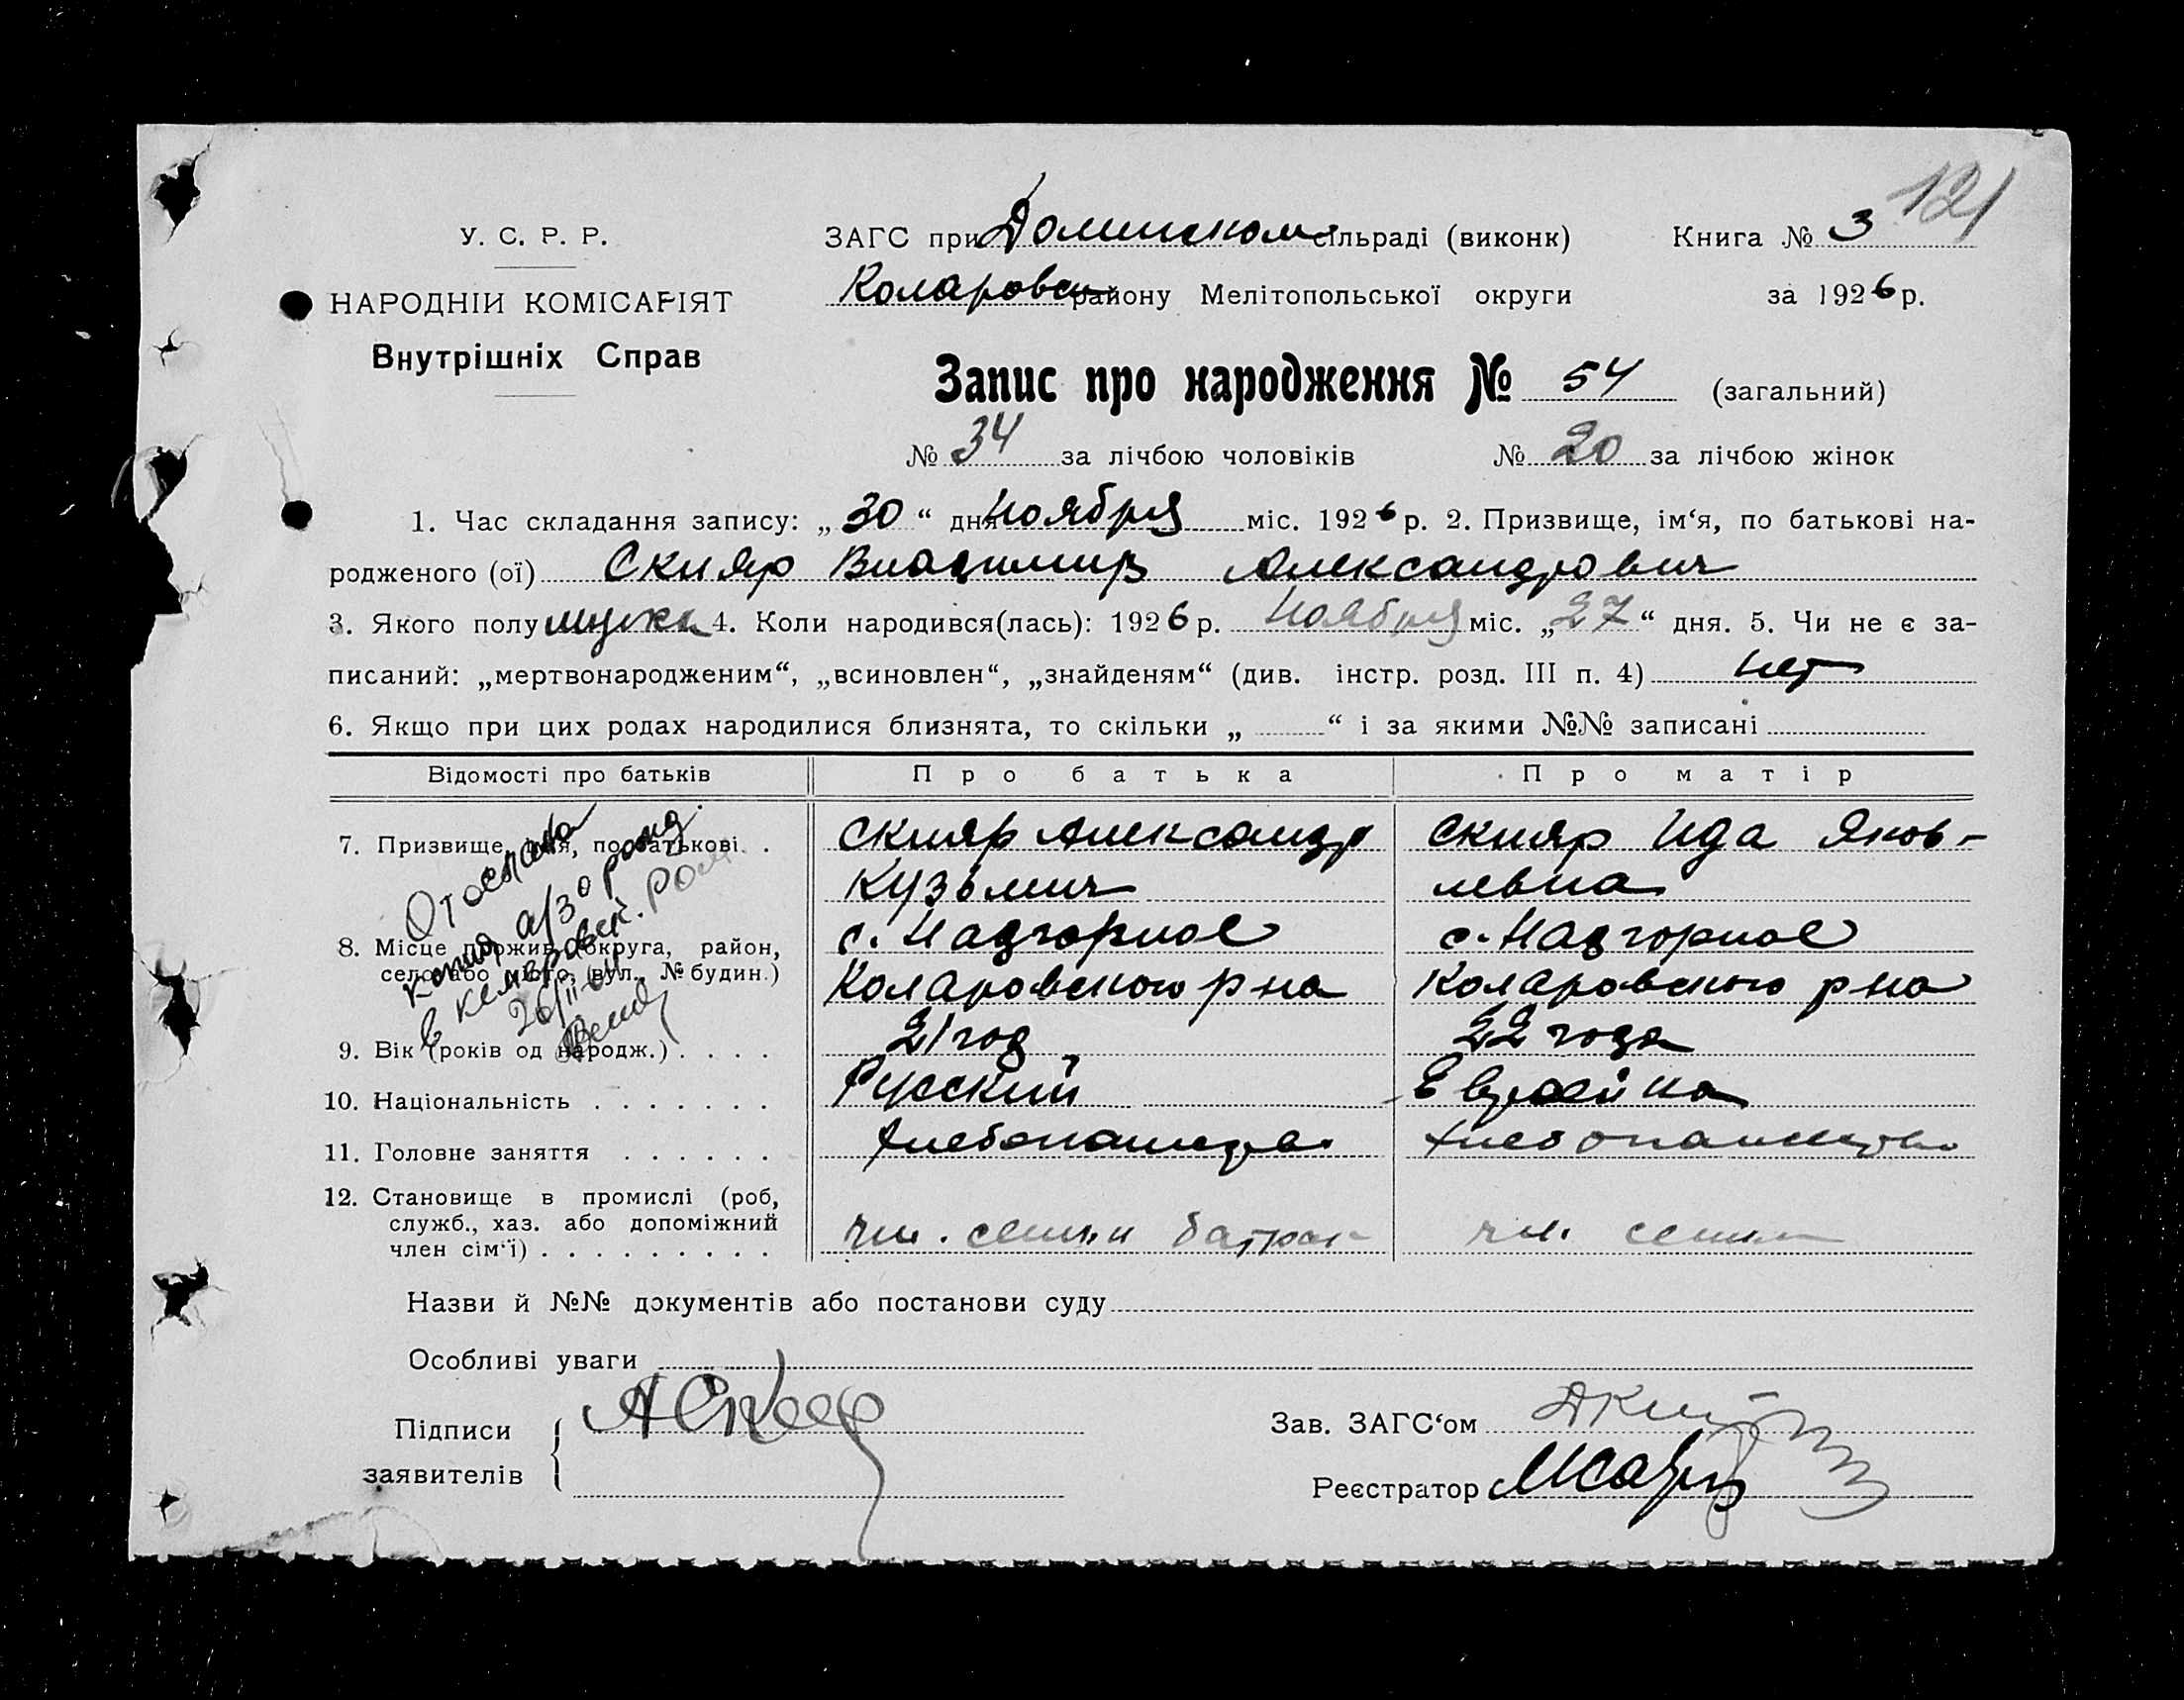 121
У. С. Р. Р.
НАРОДНІЙ КОМІСАРІЯТ
Внутрішніх Справ
ЗАГС при сільраді (виконк)
Коларовск району Мелітопольської округи
Книга № 3
за 1926 р.
Запис про народження № 54 (загальний)
№ 34 за лічбою чоловіків № 20 за лічбою жінок
1. Час складання запису: „30“ дня Ноября міс. 1926 р. 2. Призвище, ім‘я, по батькові на-
родженого (ої) Скляр Владимир Александрович
3. Якого полу мужск 4. Коли народився(лась): 1926 р. Ноября міс. „27“ дня. 5. Чи не є за-
писаний: „мертвонародженим“, „всиновлен“, „знайденям“ (див. інстр. розд. III п. 4) нет
6. Якщо при цих родах народилися близнята, то скільки „ “ і за якими №№ записані
Відомості про батьків Про батька Про матір
7. Призвище, ім‘я, по батькові. . Скляр Александр Скляр Ида Яков-
Кузьмич левна
8. Місце прожив. (округа, район, с. Надгорное с. Надгорное
село або місто, вул., № будин.) Коларовского р на Коларовского р на
9. Вік (років од народж.) . . . . 21 год 22 года
10. Національність . . . . . . . Русский Еврейка
11. Головне заняття . . . . . . Хлебопашество Хлебопашество
12. Становище в промислі (роб,
служб., хаз. або допоміжний
член сім‘ї) . . . . . . . . . чл. семьи батрак чл. семьи
Отослана
копия а/з о рожд
в кемеровск.
26/II
Назви й №№ документів або постанови суду
Особливі уваги
Підписи
заявителів
А Скляр
Зав. ЗАГС‘ом
Реєстратор